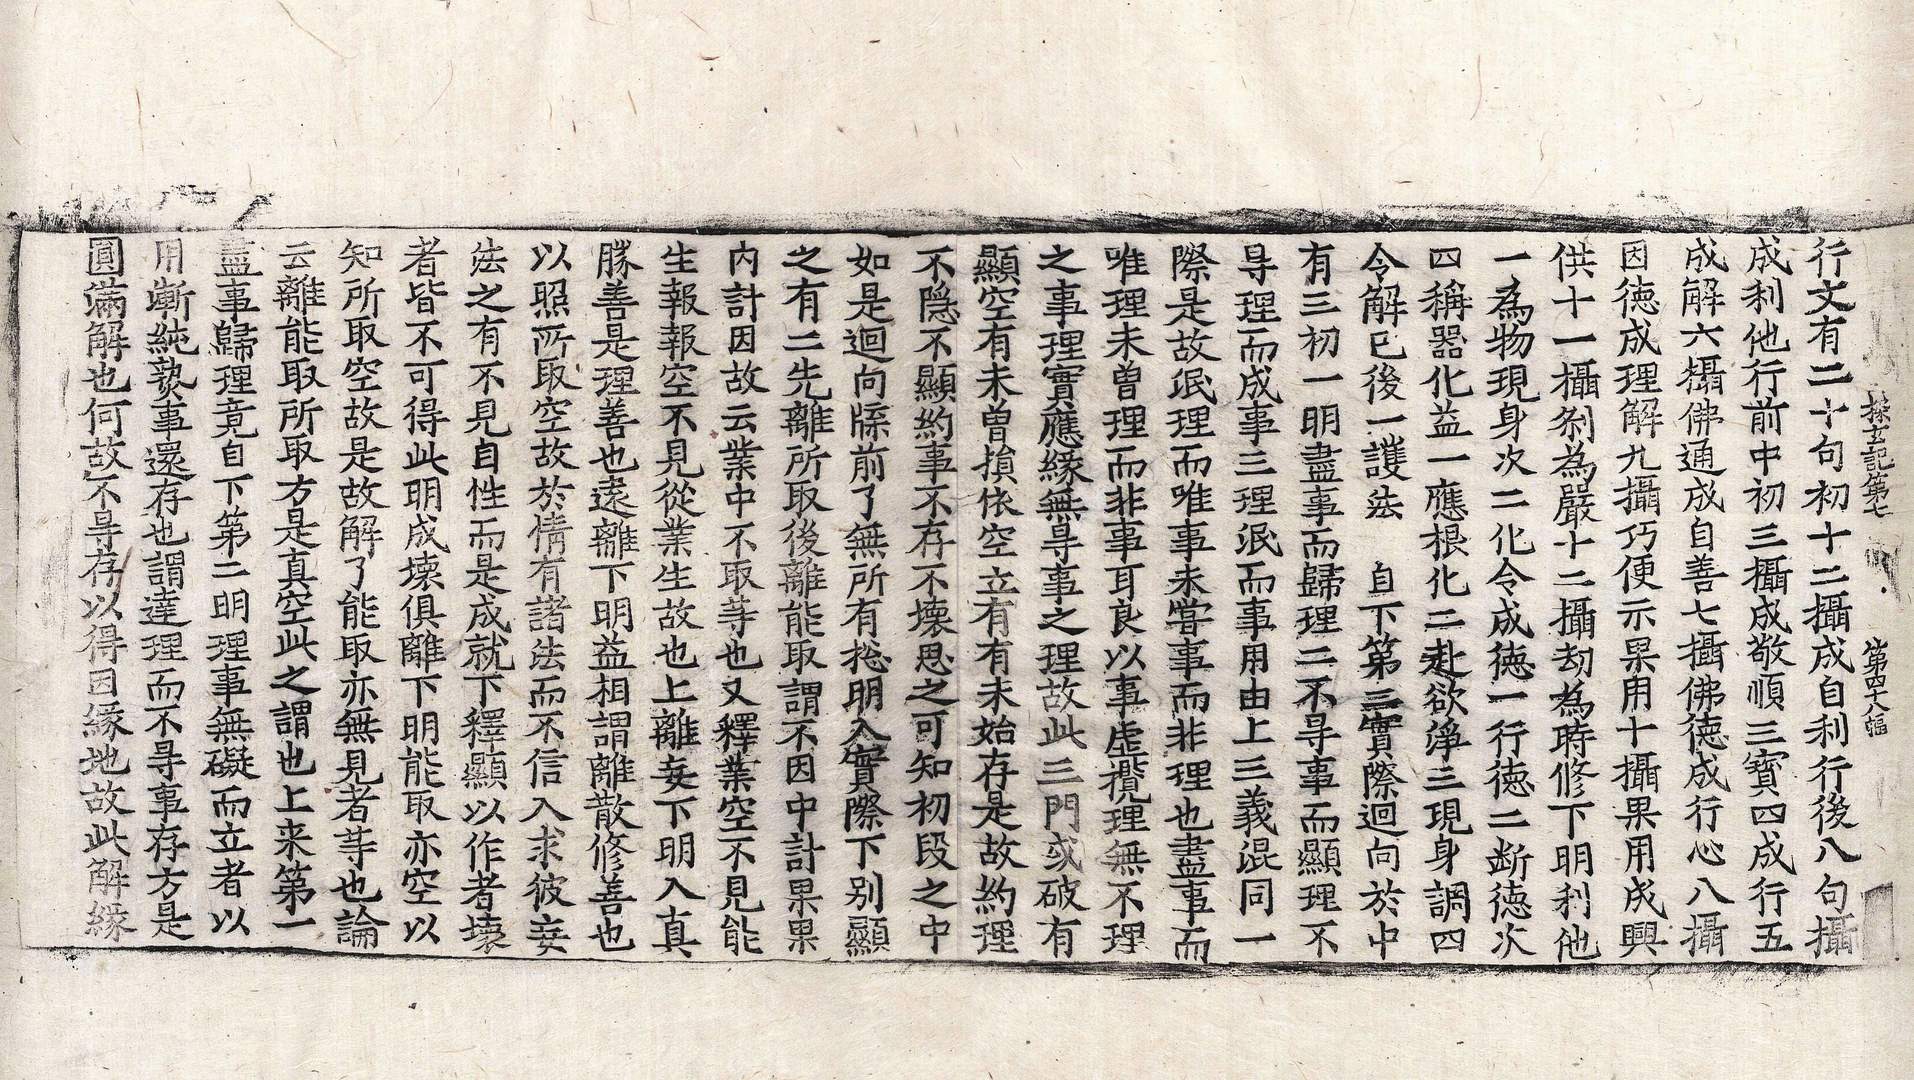 探玄記第七 第四十八幅
行文有二十句初十二攝成自利行後八句攝
成利他行前中初三攝成敬順三寶四成行五
成解六攝佛通成自善七攝佛德成行心八攝
因德成理解九攝巧便示果用十攝果用成興
供十一攝刹為嚴十二攝劫為時修下明利他
一為物現身次二化令成德一行德二斷德次
四稱器化益一應根化二赴欲淨三現身調四
令解已後一護法 自下第三實際迴向於中
有三初一明盡事而歸理二不㝵事而顯理不
㝵理而成事三理泯而事用由上三義混同一
際是故泯理而唯事未甞事而非理也盡事而
唯理未曽理而非事耳良以事虛攬理無不理
之事理實應緣無㝵事之理故此三門或破有
顯空有未曽損依空立有有未始存是故約理
不隐不顯約事不存不壞思之可知初段之中
如是迴向牒前了無所有捴明入實際下別顯
之有二先離所取後離能取謂不因中計果果
内計因故云業中不取等也又釋業空不見能
生報報空不見從業生故也上離妄下明入真
勝善是理善也遠離下明益相謂離散修善也
以照所取空故於情有諸法而不信入求彼妄
法之有不見自性而是成就下釋顯以作者壞
者皆不可得此明成壞俱離下明能取亦空以
知所取空故是故解了能取亦無見者䓁也論
云離能取所取方是真空此之謂也上来第一
盡事歸理竟自下第二明理事無礙而立者以
用漸純熟事還存也謂達理而不㝵事存方是
圓滿解也何故不㝵存以得因緣地故此解緣